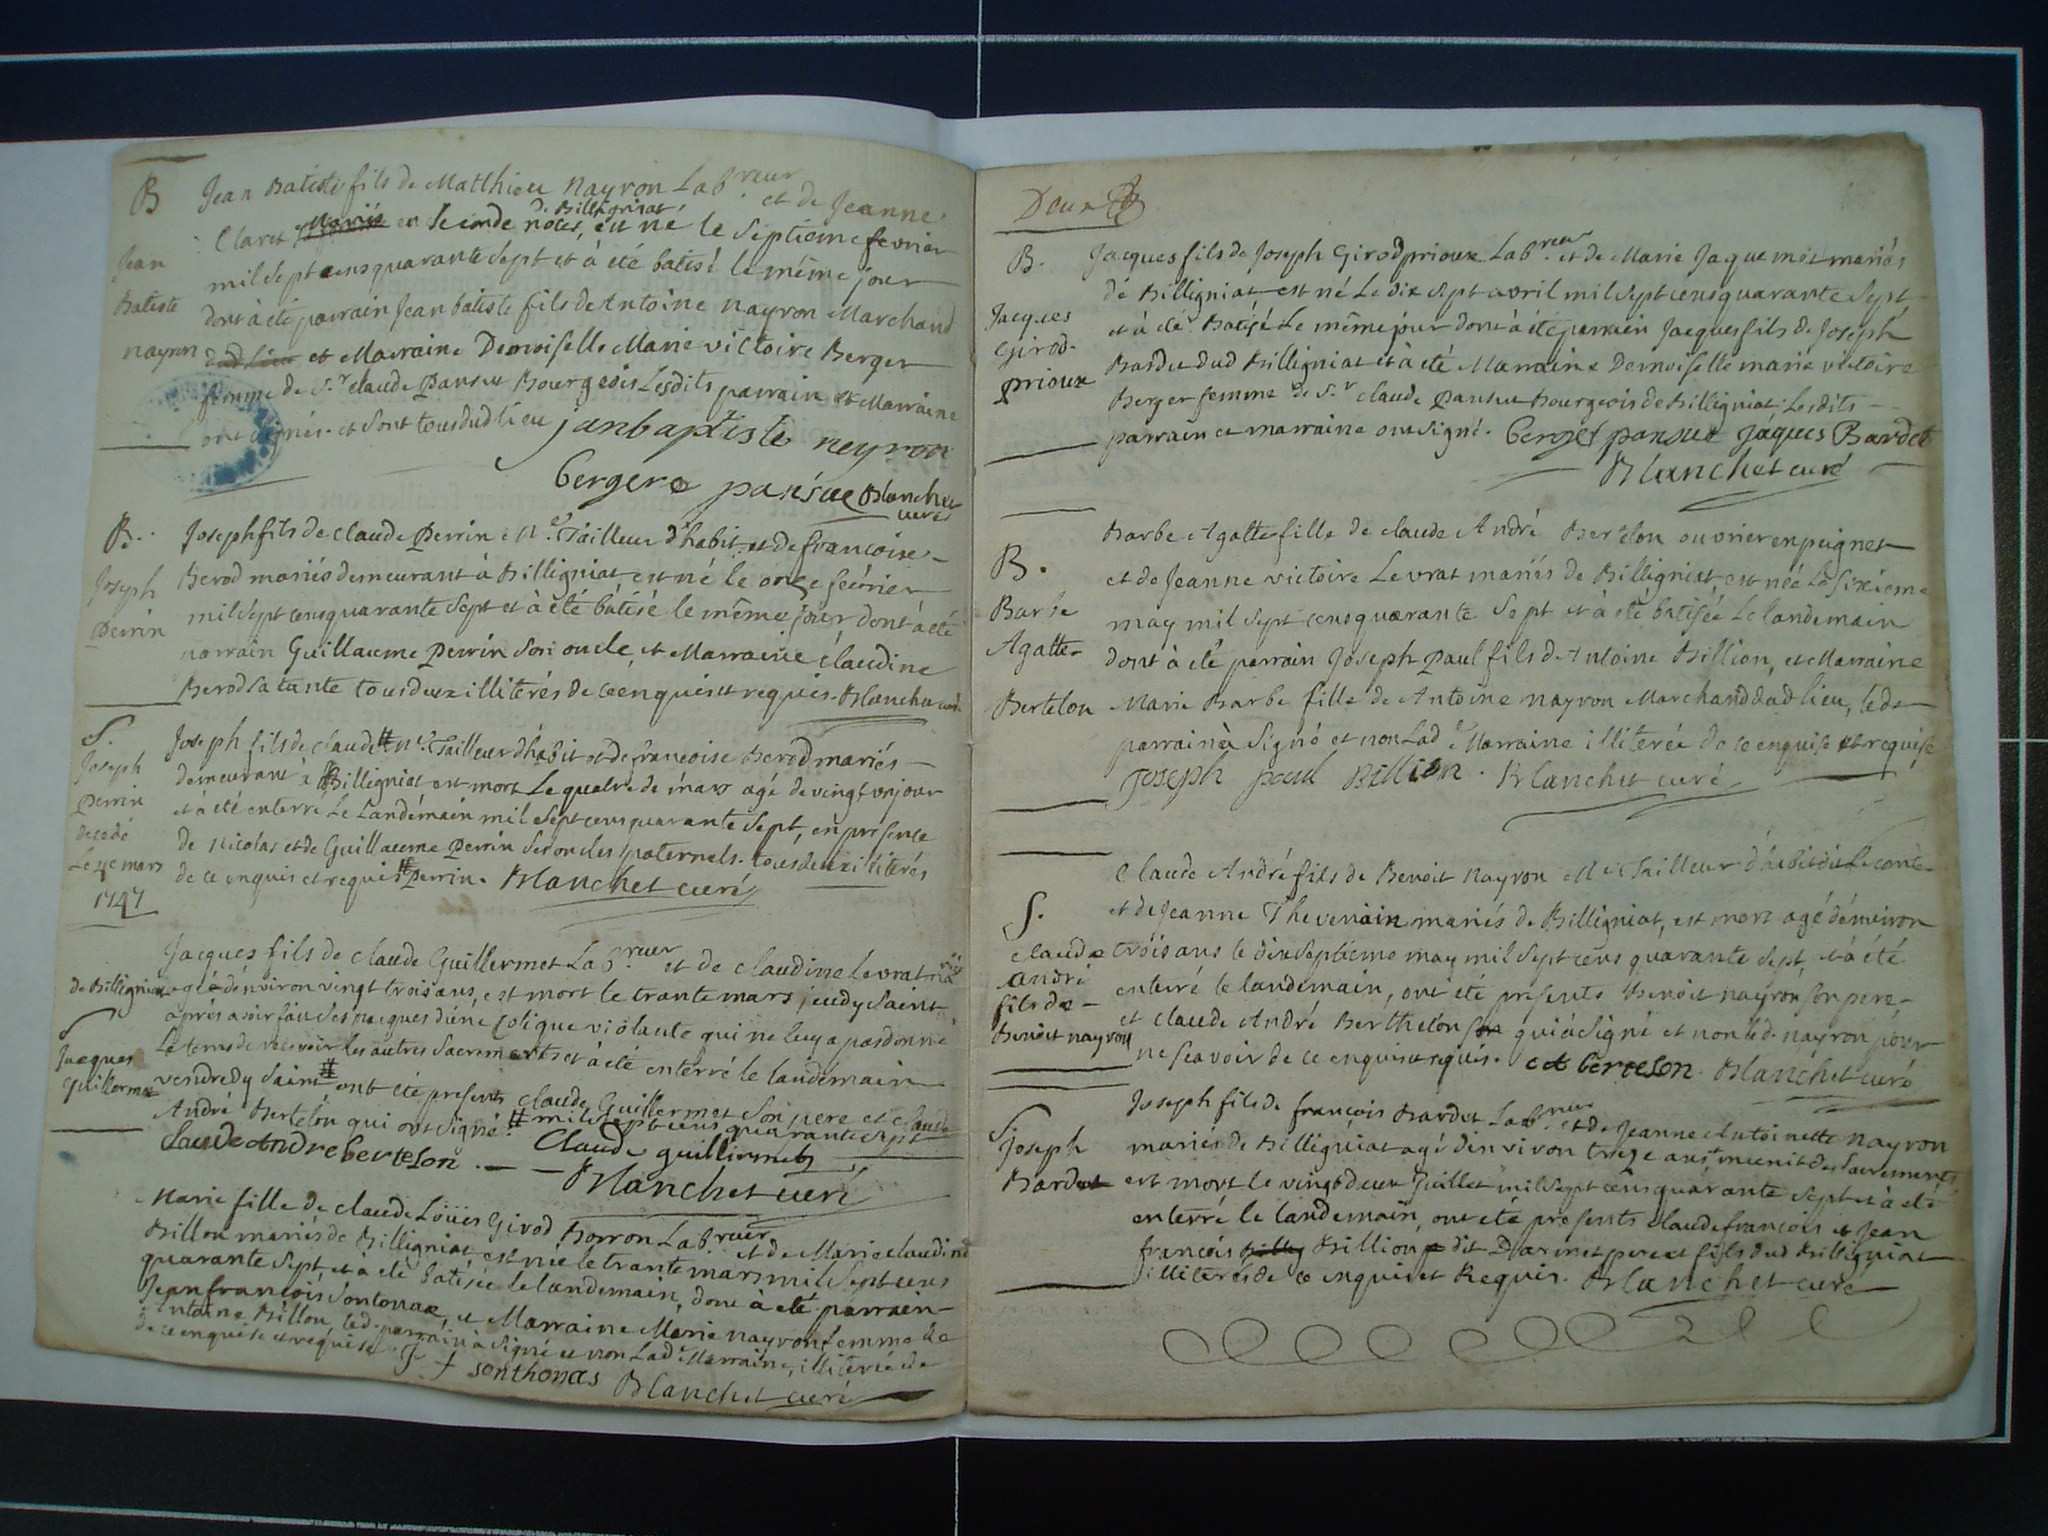 B
Jean Batiste fils de Matthieu Nayron Lab.reur et de Jeanne
Claret Mariés en Seconde noces, de Billigniat est né le Septieme fevrier
mil Sept cens quarante Sept et à été batisé le même jour
dont à été parrain Jean batiste fils de Antoine nayron Marchand
dud lieu et Marraine Demoiselle Marie victoire Berger
femme de S.r claude Pansut Bourgeois Lesdits parrain et Marraine
ont signés et sont tous dud lieu janbaptiste neyron
Jean
Batiste
nayron
bergere pansue Blanchet
curé
B.
Joseph
Perrin
Joseph fils de claude Perrin M.e Tailleur d'habit et de francoise
Berod mariés demeurant à Billigniat est né le onze février
mil Sept cens quarante Sept et à été bâtisé le même jour dont à été
parrain Guillaume Perrin son oncle, et Marraine claudine
Berod sa tante tous deux illiterés de ce enquis et requis. Blanchet curé
S.
Joseph
Perrin
decedé
Le 4e mars
1747
Joseph fils de claude # M.e Tailleur d'habit et de francoise Berod mariés
demeurant à Billigniat est mort Le quatre de mars agé de vingt un jour
et à été enterré Le Landemain mil Sept cens quarante Sept, en présence
de Nicolas et de Guillaume Perrin Ses oncles paternels. tous deux illiterés
de ce enquis et requis # Perrin. Blanchet curé
Jacques fils de claude Guillermet Lab.reur et de claudine levrat
de Billigniat agé d'environ vingt trois ans, est mort le trante mars jeudy Saint
après avoir fait Ses pacques d'une Colique violante qui ne luy a pas donné
Le tems de recevoir les autres Sacrements et à été enterré le landemain
vendredy Saint # ont été presents claude Guillermet Son pere et claude
André Bertelon qui ont Signé. # mil Sept cens quarante Sept
S
Jacques
Guillermet
Claude Andre bertelon. Claude guillirmet
Blanchet curé
Marie fille de claude Loüis Girod Borron Lab.reur et de Marie claudine
Billon mariés de Billigniat est née le trante mars mil Sept cens
quarante Sept, et a été batisée le landemain, dont à eté parrain
Jean francois Sontonax, et Marraine Marie nayron femme de
Antoine Billon, led. parrain à Signé et non Lad.e Marraine, illiterée de
de ce enquise et requise. J f sonthonas Blanchet curé
Deux
B.
Jacques
Girod
prioux
Jacques fils de Joseph Girod prioux Lab.reur et de Marie Jaquemet mariés
de Billigniat est né Le dix sept avril mil Sept cens quarante Sept
et à été Batisé Le même jour dont à été parrain Jacques fils de Joseph
Bardet dud Billigniat et à été Marraine Demoiselle marie victoire
Berger femme de S.r claude Pansut Bourgeois de Billigniat Lesdits
parrain et marraine ont signé. berger pansut jaques Bardet
Blanchet curé
B.
Barbe
Agatte
Bertelon
Barbe Agatte fille de claude André Bertelon ouvrier en peignes
et de Jeanne victoire Levrat mariés de Billigniat est née Le Sixieme
may mil Sept cens quarante Sept et à eté batisée Le landemain
dont à été parrain Joseph Paul fils d'Antoine Billion, et Marraine
Marie Barbe fille de Antoine nayron Marchand dud lieu, led
parrain à Signé et non Lad.e Marraine illiterée de ce enquise et requise
joseph paul Billion. Blanchet curé
S.
Claude
André
fils de
Benoit nayron
Claude André fils de Benoit Nayron M.e Tailleur d'habit dit Le conte
et de Jeanne Thevenain mariés de Billigniat, est mort agé d'environ
trois ans le dix Septieme may mil Sept cens quarante Sept, et à été
enterré le landemain, ont été presents Benoit nayron Son pere
et claude André Berthelon qui à signé et non led. nayron pour
ne sçavoir de ce enquis et requis. c A bertelon Blanchet curé
S
Joseph
Bardet
Joseph fils de françois Bardet Lab.reur et de Jeanne Antoinette nayron
mariés de Billigniat agé d'environ treze ans, munit des Sacrements
est mort le vingt deux Juillet mil Sept cens quarante Sept et à été
enterré le landemain, ont été presents claude francois et Jean
francois Billion dit Darinet pere et fils dud Billigniat
illiterés de ce enquis et Requis. Blanchet curé